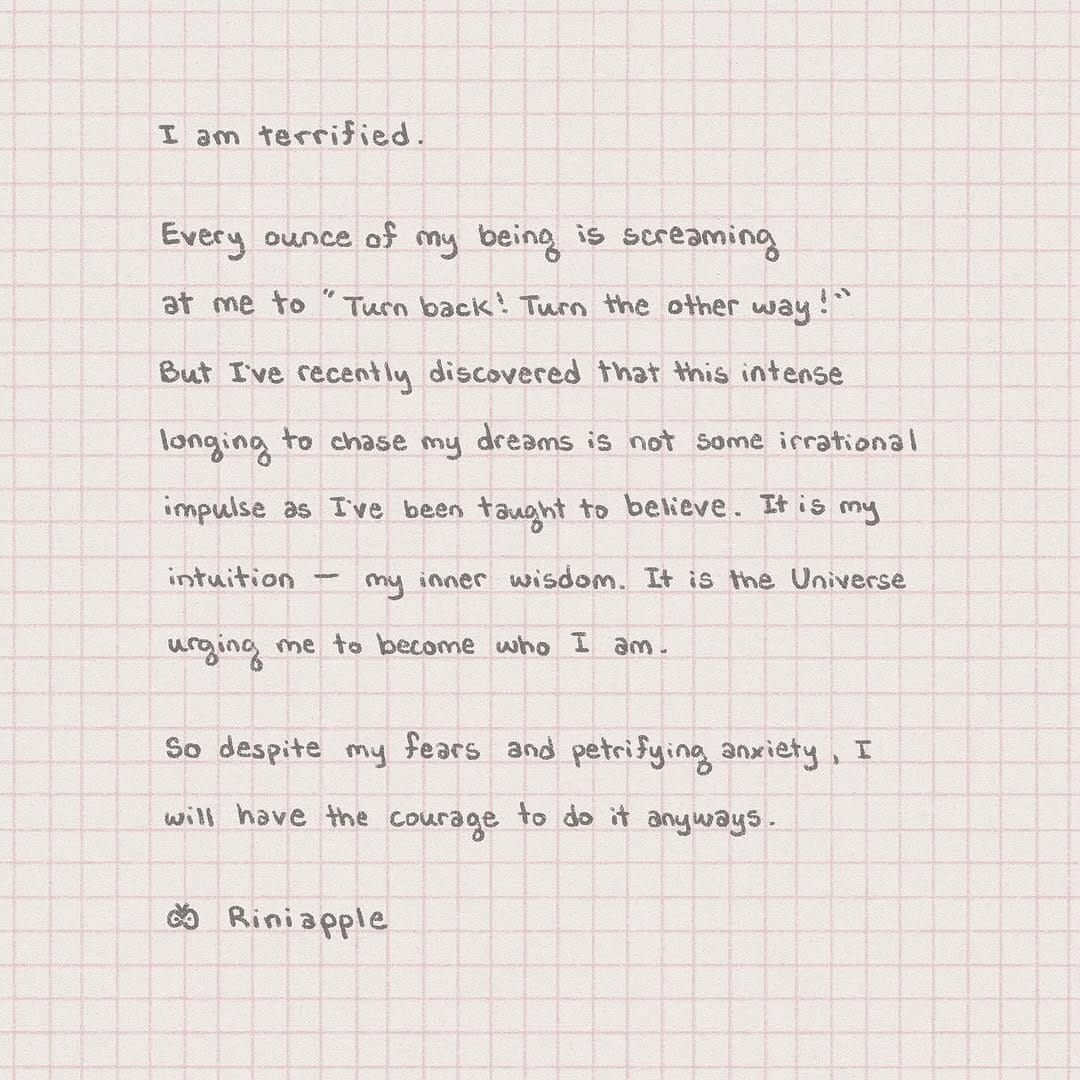 I am terrified.
Every ounce of my being is screaming
at me to "Turn back! Turn the other way!"
But I've recently discovered that this intense
longing to chase my dreams is not some irrational
impulse as I've been taught to believe. It is my
intuition — my inner wisdom. It is the Universe
urging me to become who I am.
So despite my fears and petrifying anxiety, I
will have the courage to do it anyways.
Riniapple